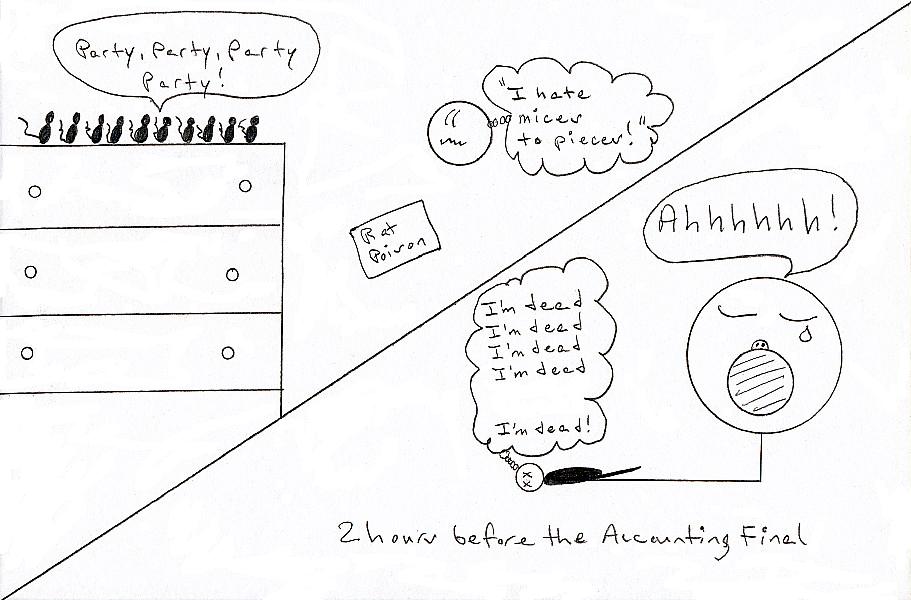 Party, Party, Party
Party!
"I hate
mices
to pieces!"
Rat
Poison
Ahhhhhh!
I'm dead
I'm dead
I'm dead
I'm dead
I'm dead!
2 hours before the Accounting Final